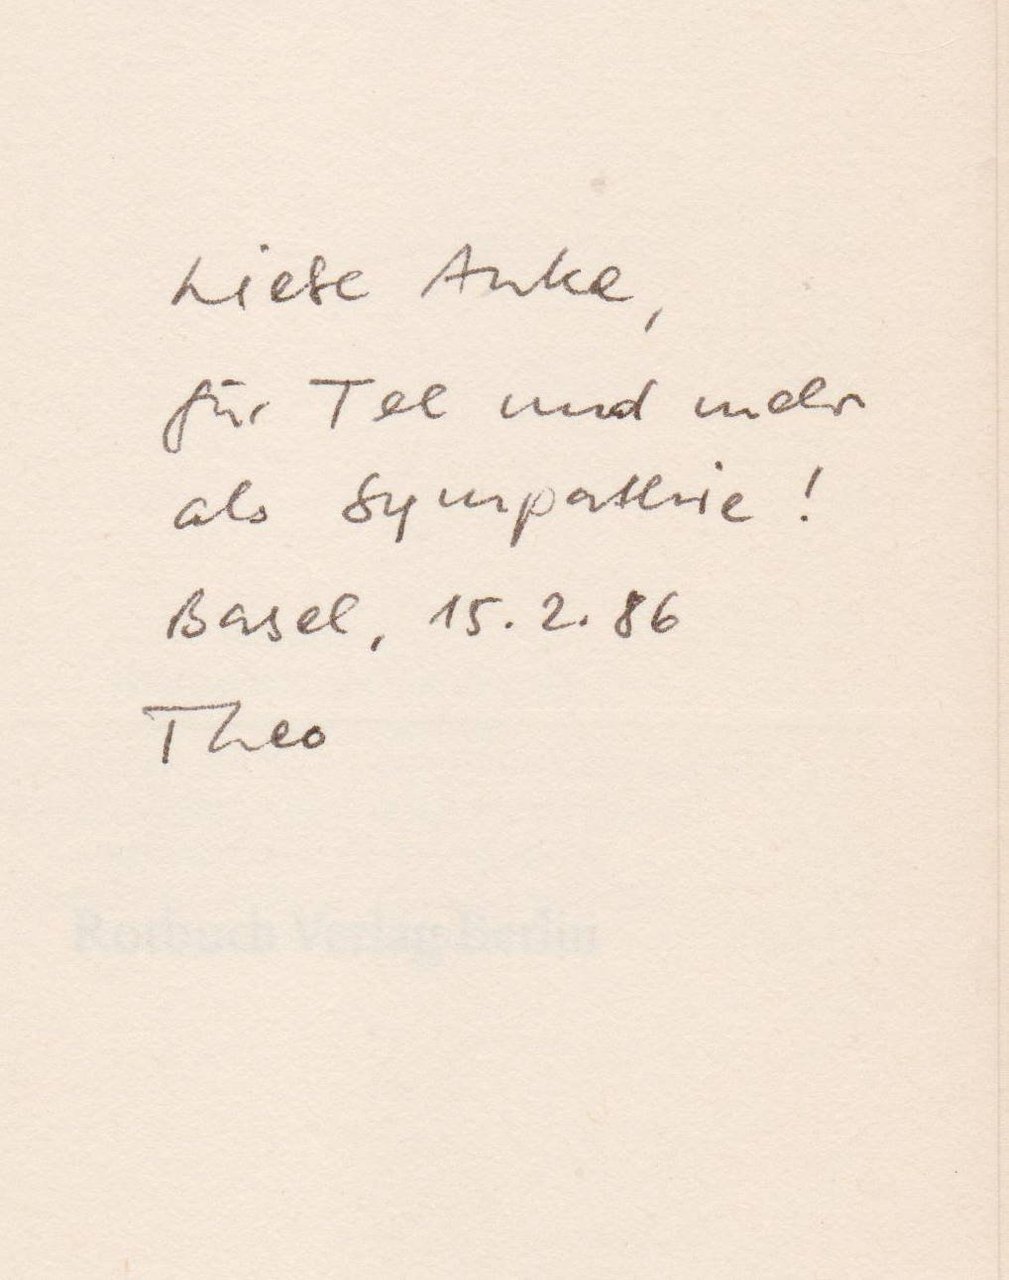 Liebe Anke,
für Tee und mehr
als Sympathie!
Basel, 15.2.86
Theo
Rotbuch Verlag Berlin